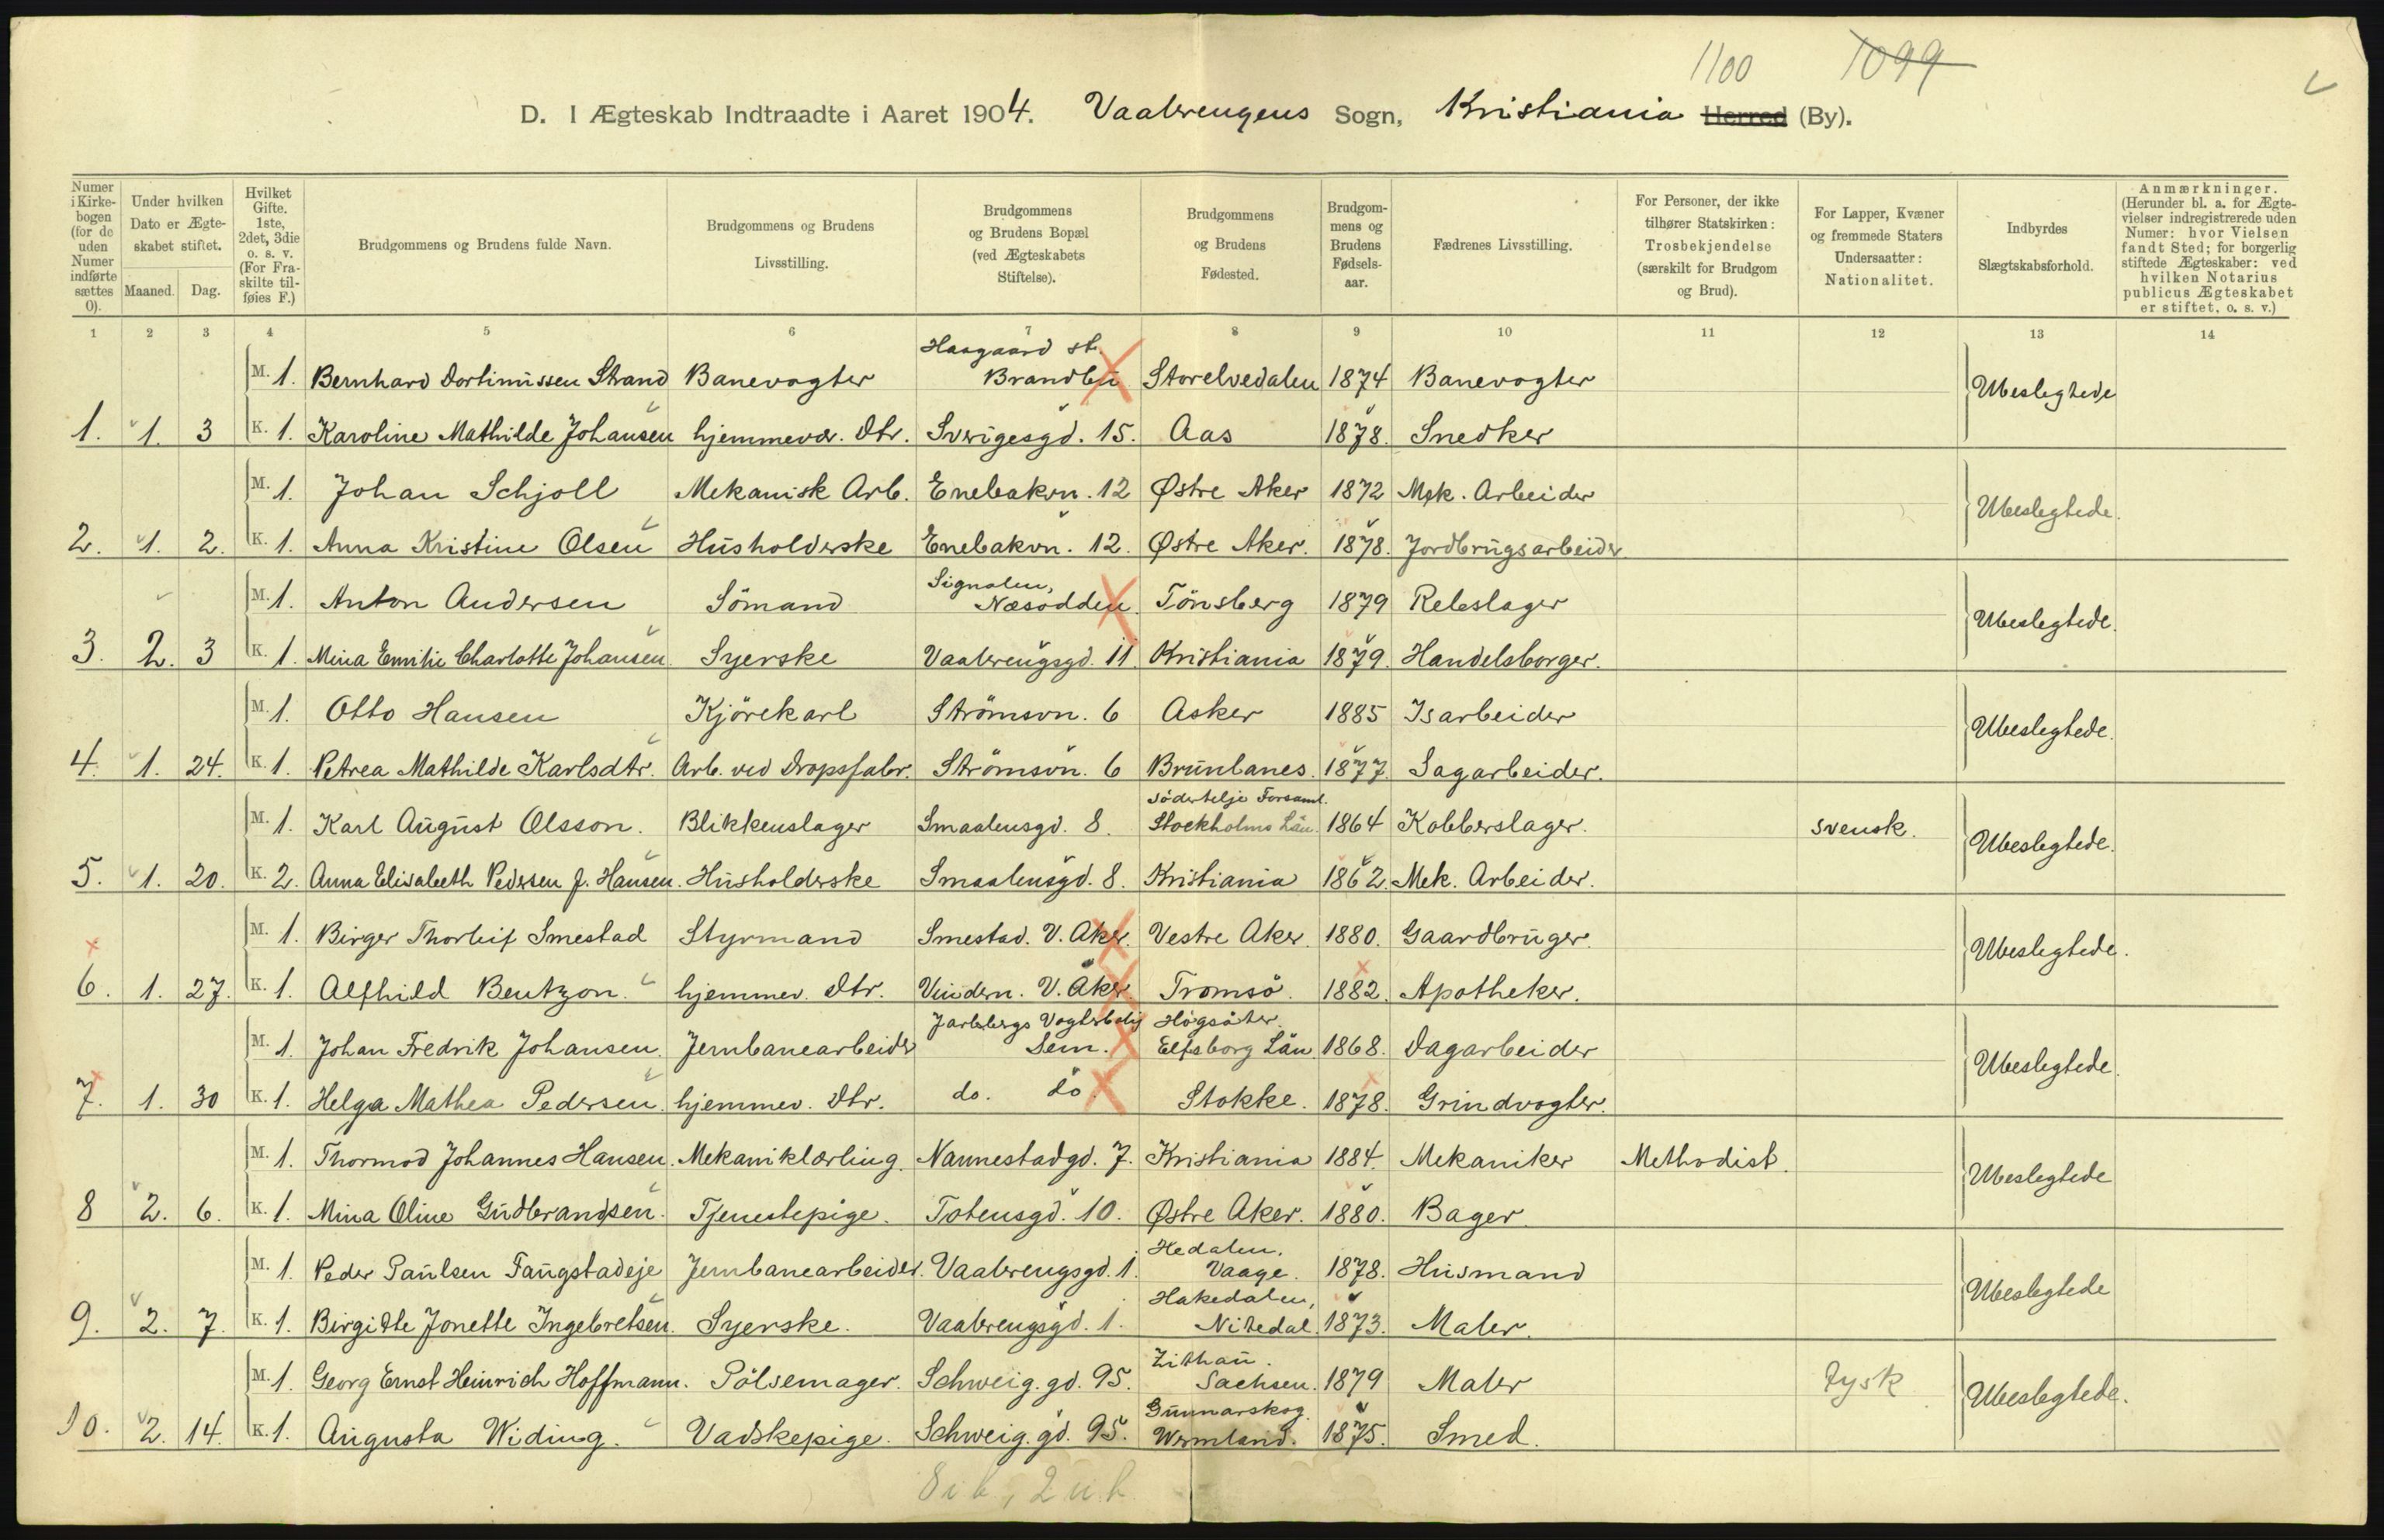 1100 1099
D. I Ægteskab Indtraadte i Aaret 1904. Vaalerengens Sogn, Kristiania Herred (By).
Numer i Kirkebogen (for de uden Numer indførte sættes 0). Under hvilken Dato er Ægteskabet stiftet. Maaned. Dag. Hvilket Gifte. 1ste, 2det, 3die o. s. v. (For Fraskilte tilføies F.) Brudgommens og Brudens fulde Navn. Brudgommens og Brudens Livsstilling. Brudgommens og Brudens Bopæl (ved Ægteskabets Stiftelse). Brudgommens og Brudens Fødested. Brudgommens og Brudens Fødselsaar. Fædrenes Livsstilling. For Personer, der ikke tilhører Statskirken: Trosbekjendelse (særskilt for Brudgom og Brud). For Lapper, Kvæner og fremmede Staters Undersaatter: Nationalitet. Indbyrdes Slægtskabsforhold. Anmærkninger. (Herunder bl. a. for Ægtevielser indregistrerede uden Numer: hvor Vielsen fandt Sted; for borgerlig stiftede Ægteskaber: ved hvilken Notarius publicus Ægteskabet er stiftet, o. s. v.)
1 2 3 4 5 6 7 8 9 10 11 12 13 14
M. 1. Bernhard Dortinussen Strand Banevogter Haagaard st. Brandbu Storelvedalen 1874 Banevogter Ubeslegtede
1. 1. 3 K. 1. Karoline Mathilde Johansen hjemmevær. Dtr. Sverigesgd. 15. Aas 1878. Snedker
M. 1. Johan Schjoll Mekanisk Arb. Enebakvn. 12 Østre Aker 1872 Mek. Arbeider Ubeslegtede.
2. 1. 2. K. 1. Anna Kristine Olsen Husholderske Enebakvn. 12. Østre Aker. 1878. Jordbrugsarbeider
M. 1. Anton Andersen Sömand Signalen, Næsodden. Tönsberg 1879 Rebslager Ubeslegtede.
3. 2. 3 K. 1. Mina Emilie Charlotte Johansen. Syerske Vaalerengsgd. 11. Kristiania 1879. Handelsborger.
M. 1. Otto Hansen Kjörekarl Strömsvn. 6 Asker 1885 Isarbeider Ubeslegtede.
4. 1. 24. K. 1. Petrea Mathilde Karlsdtr. Arb. ved Dropsfabr. Strömsvn. 6 Brunlanes. 1877. Sagarbeider.
M. 1. Karl August Olsson. Blikkenslager Smaalensgd. 8. Södertelje Forsaml. Stockholms Län 1864 Kobberslager. svensk. Ubeslegtede.
5. 1. 20. K. 2. Anna Elisabeth Pedersen f. Hansen. Husholderske Smaalensgd. 8. Kristiania 1862. Mek. Arbeider.
M. 1. Birger Thorleif Smestad Styrmand Smestad. V. Aker. Vestre Aker. 1880. Gaardbruger. Ubeslegtede.
6. 1. 27. K. 1. Alfhild Bentzon. hjemmev. Dtr. Vindern. V. Aker. Tromsö. 1882. Apotheker.
M. 1. Johan Fredrik Johansen. Jernbanearbeider Jarlsbergs Vogterbolig Sem. Högsäter. Elfsborg Län 1868. Dagarbeider Ubeslegtede.
7. 1. 30 K. 1. Helga Mathea Pedersen. hjemmev. Dtr. do. do Stokke. 1878. Grindvogter.
M. 1. Thormod Johannes Hansen. Mekaniklærling. Nannestadgd. 7. Kristiania 1884. Mekaniker Methodist. Ubeslegtede
8 2. 6. K. 1. Mina Oline Gudbrandsen. Tjenestepige. Totensgd. 10. Østre Aker. 1880. Bager.
M. 1. Peder Paulsen Faugstadeje Jernbanearbeider. Vaalerengsgd. 1. Hedalen. Vaage. 1878. Husmand Ubeslegtede
9. 2. 7. K. 1. Birgitte Jonette Ingebretsen. Syerske. Vaalerengsgd. 1. Hakedalen, Nitedal. 1873. Maler.
M. 1. Georg Ernst Heinrich Hoffmann. Pölsemager. Schweig. gd. 95. Zithau. Sachsen. 1879 Maler tysk Ubeslegtede.
10. 2. 14. K. 1. Augusta Widing. Vadskepige. Schweig. gd. 95. Gunnarskog. Wermland. 1875. Smed.
8 i b, 2 u.b.